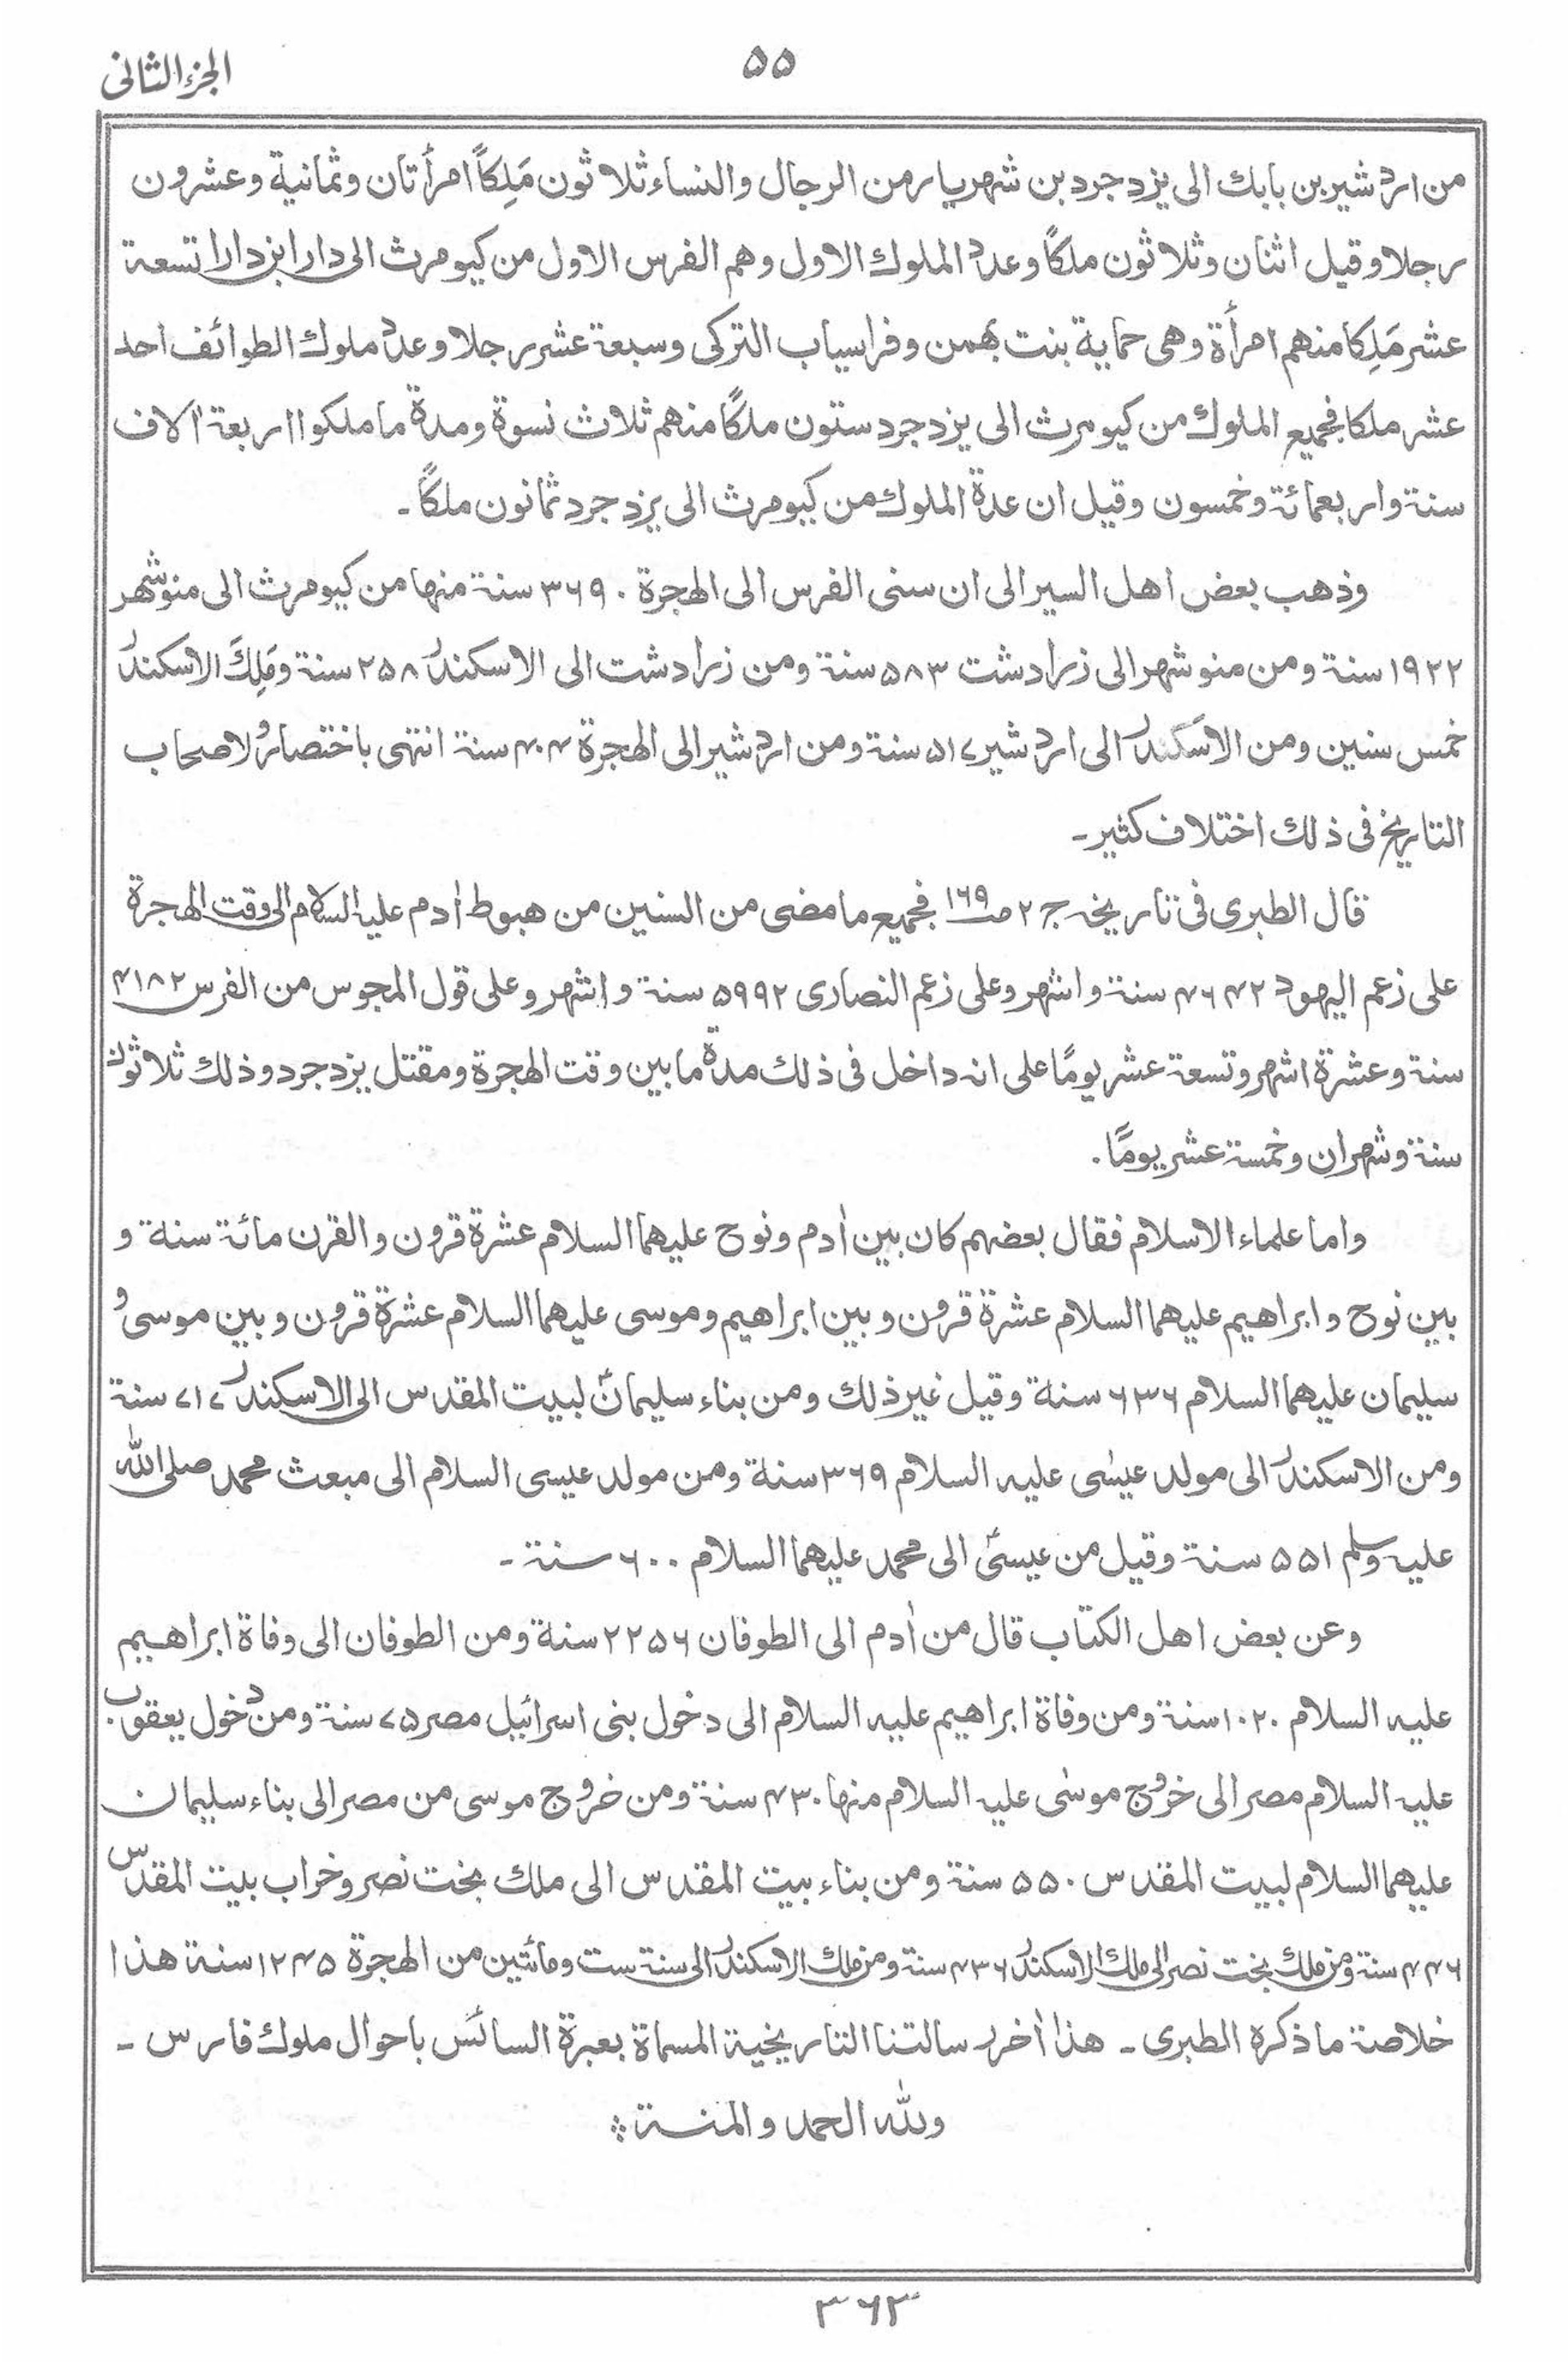 الجزء الثانی
۵۵
من اردشیر بن بابك الی یزدجرد بن شهریار من الرجال والنساء ثلاثون مَلِكاً امرأتان وثمانیة وعشرون
رجلا وقیل اثنان وثلاثون ملكاً وعدد الملوك الاول وهم الفرس الاول من كیومرث الی دارا بن دارا تسعة
عشر مَلِكا منهم امرأة وهی حمایة بنت بهمن وفراسیاب التركی وسبعة عشر رجلا وعدد ملوك الطوائف احد
عشر ملكا فجمیع الملوك من كیومرث الی یزدجرد ستون ملكاً منهم ثلاث نسوة ومدة ما ملكوا اربعة اٰلاف
سنة واربعمائة وخمسون وقیل ان عدة الملوك من كیومرث الی یزدجرد ثمانون ملكاً۔
وذهب بعض اهل السیر الی ان سنی الفرس الی الهجرة ۳۶۹۰ سنة منها من كیومرث الی منوشهر
۱۹۲۲ سنة ومن منوشهر الی زرادشت ۵۸۳ سنة ومن زرادشت الی الاسكندر ۲۵۸ سنة ومَلِكَ الاسكندر
خمس سنین ومن الاسكندر الی اردشیر ۵۱۷ سنة ومن اردشیر الی الهجرة ۴۰۴ سنة انتهی باختصار ولاصحاب
التاریخ فی ذلك اختلاف كثیر۔
قال الطبری فی تاریخه ج ۲ ص ۱۶۹ فجمیع ما مضی من السنین من هبوط اٰدم علیه السلام الی وقت الهجرة
علی زعم الیهود ۴۶۴۲ سنة واشهر وعلی زعم النصاری ۵۹۹۲ سنة واشهر وعلی قول المجوس من الفرس ۴۱۸۲
سنة وعشرة اشهر وتسعة عشر یومًا علی انه داخل فی ذلك مدة ما بین وقت الهجرة ومقتل یزدجرد وذلك ثلاثون
سنة وشهران وخمسة عشر یومًا۔
واما علماء الاسلام فقال بعضهم كان بین اٰدم ونوح علیهما السلام عشرة قرون والقرن مائة سنة و
بین نوح وابراهیم علیهما السلام عشرة قرون وبین ابراهیم وموسی علیهما السلام عشرة قرون وبین موسی و
سلیمان علیهما السلام ۶۳۶ سنة وقیل غیر ذلك ومن بناء سلیمانؑ لبیت المقدس الی الاسكندر ۷۱۷ سنة
ومن الاسكندر الی مولد عیسٰی علیه السلام ۳۶۹ سنة ومن مولد عیسی السلام الی مبعث محمد صلی الله
علیه وسلم ۵۵۱ سنة وقیل من عیسیٰؑ الی محمد علیهما السلام ۶۰۰ سنة۔
وعن بعض اهل الكتاب قال من اٰدم الی الطوفان ۲۲۵۶ سنة ومن الطوفان الی وفاة ابراهیم
علیه السلام ۱۰۲۰ سنة ومن وفاة ابراهیم علیه السلام الی دخول بنی اسرائیل مصر ۷۵ سنة ومن دخول یعقوب
علیه السلام مصر الی خروج موسٰی علیه السلام منها ۴۳۰ سنة ومن خروج موسی من مصر الی بناء سلیمان
علیهما السلام لبیت المقدس ۵۵۰ سنة ومن بناء بیت المقدس الی ملك بخت نصر وخراب بیت المقدس
۴۴۶ سنة ومن ملك بخت نصر الی ملك الاسكندر ۴۳۶ سنة ومن ملك الاسكندر الی سنة ست ومائتین من الهجرة ۱۲۴۵ سنة هذا
خلاصة ما ذكره الطبری۔ هذا اٰخر رسالتنا التاریخیة المسماة بعبرة السائس باحوال ملوك فارس۔
ولله الحمد والمنة
۳۶۳